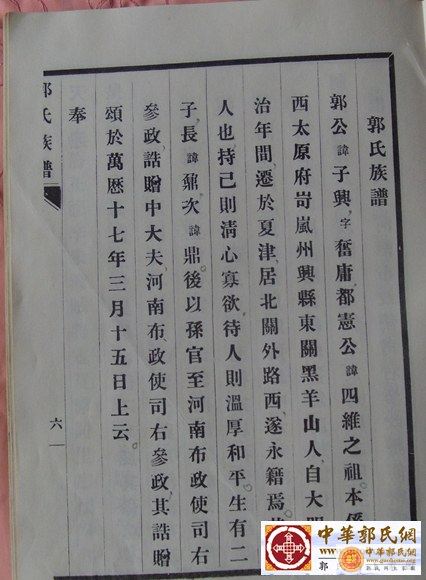 郭氏族譜
郭公諱子興字奮庸都憲公諱四維之祖本係
西太原府岢嵐州興縣東關黑羊山人自大明
治年間遷於夏津居北關外路西遂永籍焉
人也持己則清心寡欲待人則溫厚和平生有二
子長諱鼐次諱鼎後以孫官至河南布政使司右
參政誥贈中大夫河南布政使司右參政其誥贈
頒於萬歷十七年三月十五日上云
奉
郭氏族譜
六
中華郭氏網
郭
中華郭氏網